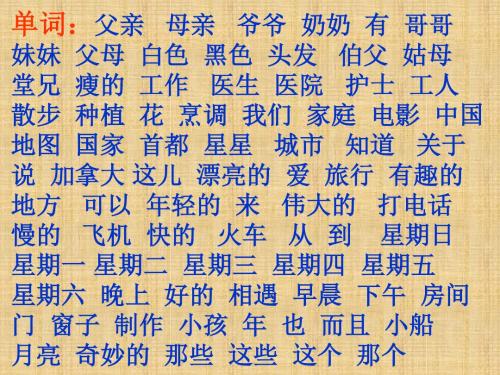 单词：父亲 母亲 爷爷 奶奶 有 哥哥
妹妹 父母 白色 黑色 头发 伯父 姑母
堂兄 瘦的 工作 医生 医院 护士 工人
散步 种植 花 烹调 我们 家庭 电影 中国
地图 国家 首都 星星 城市 知道 关于
说 加拿大 这儿 漂亮的 爱 旅行 有趣的
地方 可以 年轻的 来 伟大的 打电话
慢的 飞机 快的 火车 从 到 星期日
星期一 星期二 星期三 星期四 星期五
星期六 晚上 好的 相遇 早晨 下午 房间
门 窗子 制作 小孩 年 也 而且 小船
月亮 奇妙的 那些 这些 这个 那个